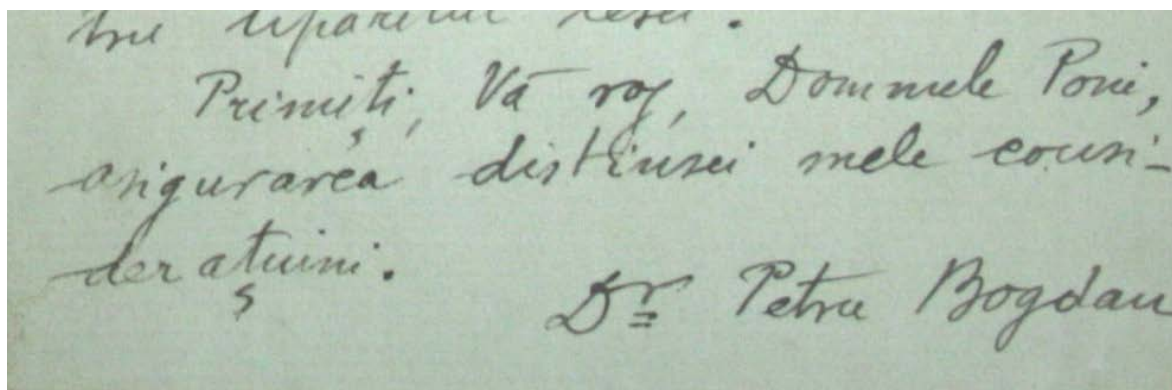 tru tiparitul tesei.
Primiți, Vă rog, Domnule Poni,
asigurarea distinsei mele consi-
derațiuini.
Dr Petru Bogdan